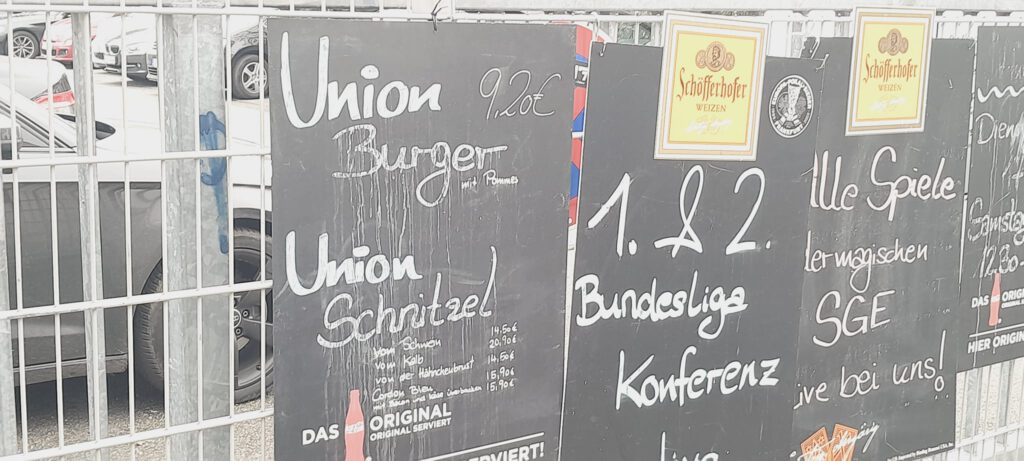 Union
9,20€
Burger
mit Pommes
Union
Schnitzel
vom Schwein 14,50€
vom Kalb 20,90€
von der Hähnchenbrust 14,50€
Cordon Bleu 15,90€
15,90€
DAS ORIGINAL
ORIGINAL SERVIERT
ERVIERT!
Schöfferhofer
WEIZEN
1. & 2.
Bundesliga
Konferenz
Live
Schöfferhofer
WEIZEN
lle Spiele
der magischen
SGE
ive bei uns!
Dienst
Samstag
12.30-
DAS ORIG
ORIGINAL
HIER ORIGIN